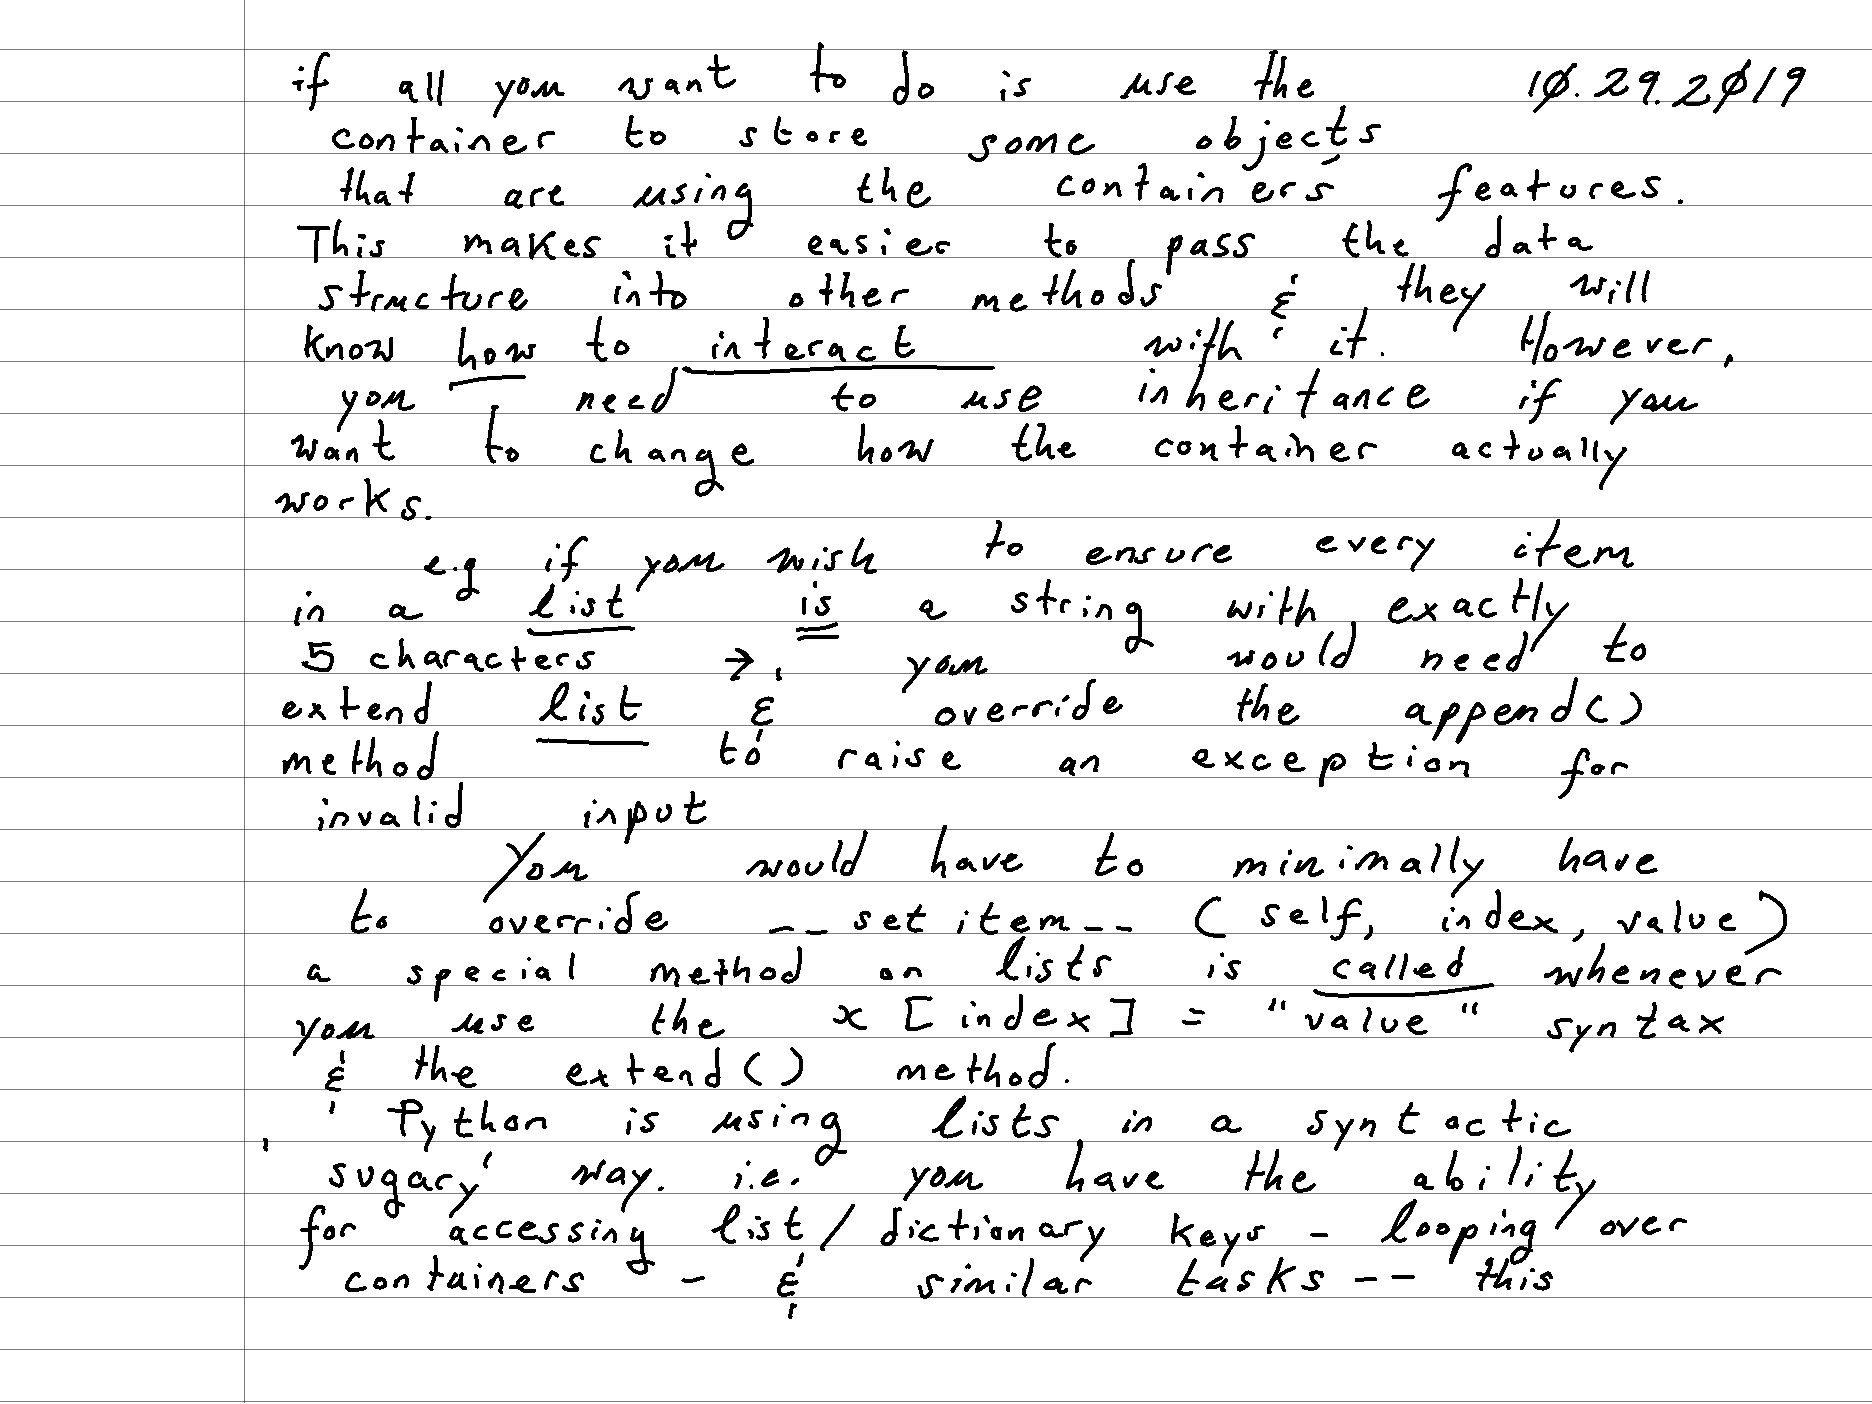 if all you want to do is use the 10.29.2019
container to store some objects
that are using the containers features.
This makes it easier to pass the data
structure into other methods & they will
know how to interact with it. However,
you need to use inheritance if you
want to change how the container actually
works.
e.g if you wish to ensure every item
in a list is a string with exactly
5 characters → you would need to
extend list & override the append()
method to raise an exception for
invalid input
You would have to minimally have
to override __ set item __ ( self, index, value )
a special method on lists is called whenever
you use the x [ index ] = "value" syntax
& the extend() method.
Python is using lists in a syntactic
'sugary' way. i.e. you have the ability
for accessing list / dictionary keys - looping over
containers - & similar tasks -- this